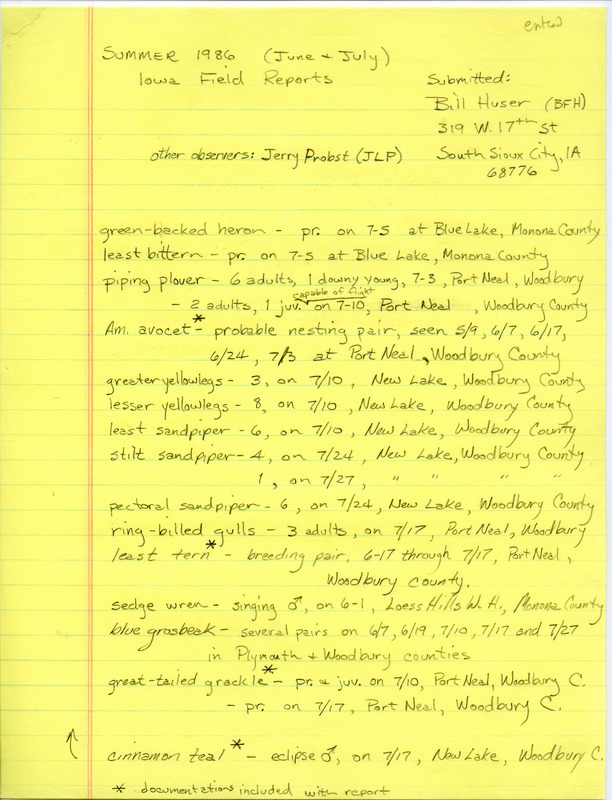 enterd
SUMMER 1986 (June & July)
Iowa Field Reports
Submitted:
Bill Huser (BFH)
319 W. 17th St
other observers: Jerry Probst (JLP)
South Sioux City, IA
68776
green-backed heron - pr. on 7-5 at Blue Lake, Monona County
least bittern - pr. on 7-5 at Blue Lake, Monona County
piping plover - 6 adults, 1 downy young, 7-3, Port Neal, Woodbury
capable of flight
- 2 adults, 1 juv. on 7-10, Port Neal, Woodbury County
Am. avocet* - probable nesting pair, seen 5/9, 6/7, 6/17,
6/24, 7/3 at Port Neal, Woodbury County
greater yellowlegs - 3, on 7/10, New Lake, Woodbury County
lesser yellowlegs - 8, on 7/10, New Lake, Woodbury County
least sandpiper - 6, on 7/10, New Lake, Woodbury County
stilt sandpiper - 4, on 7/24, New Lake, Woodbury County
1, on 7/27, " " " "
pectoral sandpiper - 6, on 7/24, New Lake, Woodbury County
ring-billed gulls - 3 adults, on 7/17, Port Neal, Woodbury
least tern* - breeding pair, 6-17 through 7/17, Port Neal,
Woodbury county.
sedge wren - singing ♂, on 6-1, Loess Hills W.A., Monona County
blue grosbeak - several pairs on 6/7, 6/19, 7/10, 7/17 and 7/27
in Plymouth & Woodbury counties
great-tailed grackle* - pr. & juv. on 7/10, Port Neal, Woodbury C.
- pr. on 7/17, Port Neal, Woodbury C.
↑ cinnamon teal* - eclipse ♂, on 7/17, New Lake, Woodbury C.
* documentations included with report